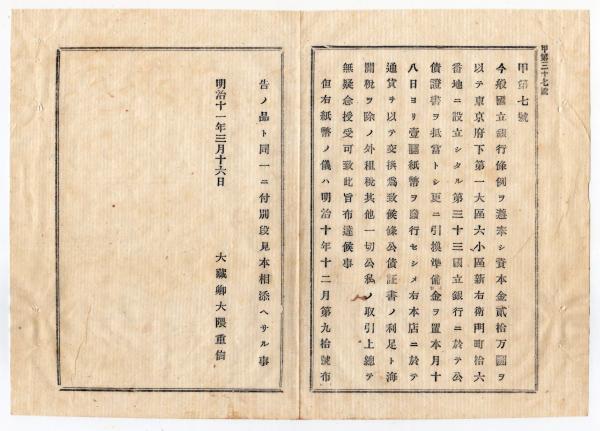 甲第三十七號
甲第七號
今般國立銀行條例ヲ遵奉シ資本金貳拾万圓ヲ
以テ東京府下第一大區六小區新右衛門町拾六
番地ニ設立シタル第三十三國立銀行ニ於テ公
債證書ヲ抵當トシ更ニ引換準備金ヲ置本月十
八日ヨリ壹圓紙幣ヲ發行セシメ右本店ニ於テ
通貨ヲ以テ交換為致候條公債証書ノ利足ト海
關税ヲ除ノ外租税其他一切公私ノ取引上總テ
無疑念授受可致此旨布達候事
但右紙幣ノ儀ハ明治十年十二月第九拾號布
告ノ品ト同一ニ付別段見本相添ヘサル事
明治十一年三月十六日
大藏卿大隈重信